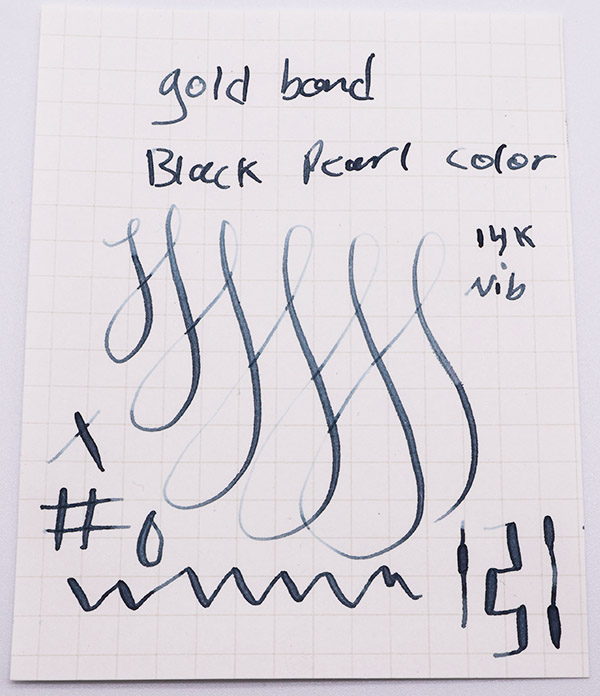 gold bond
Black Pearl color
14K
Nib